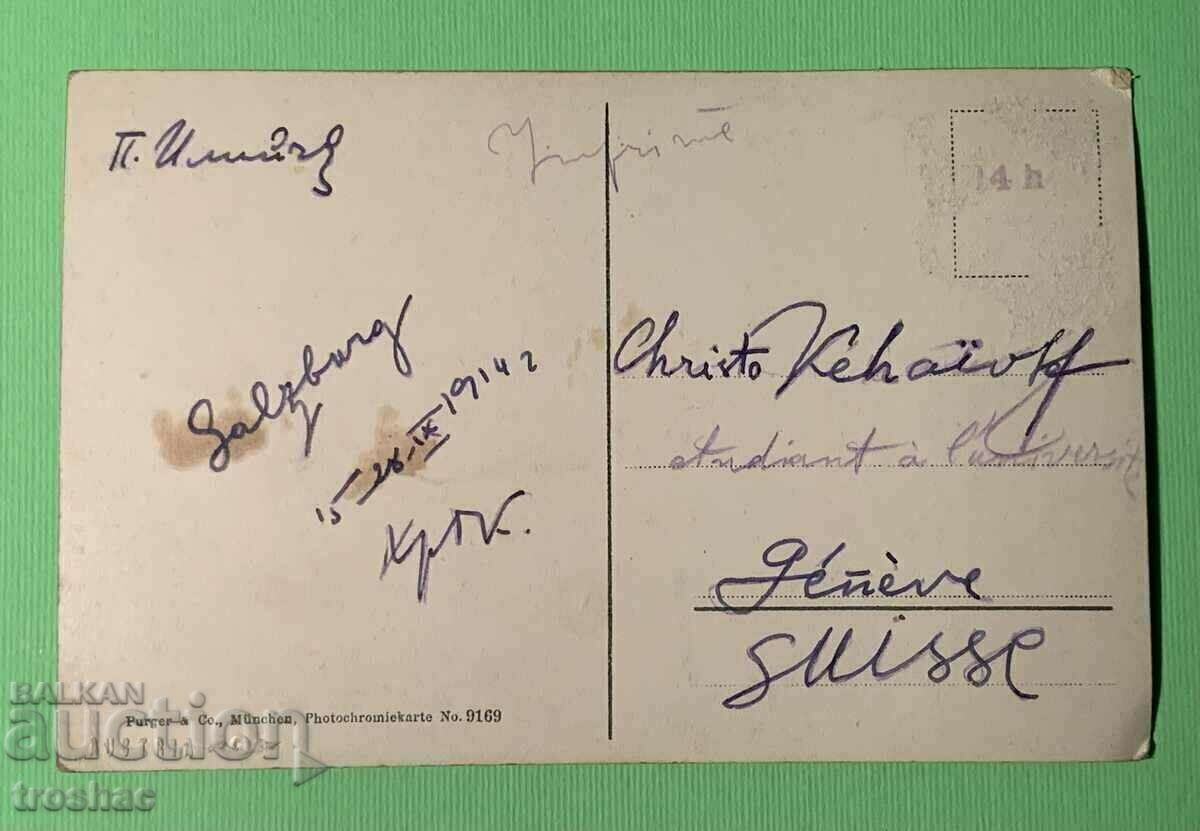 Imprimé
4 h
Salzburg
15-28-IX-1914 г
Хр. К.
Christo Kehaïoff
etudiant à l'université
Génève
SUISSE
Purger & Co., München, Photochromiekarte No. 9169
BALKAN
auction
troshac